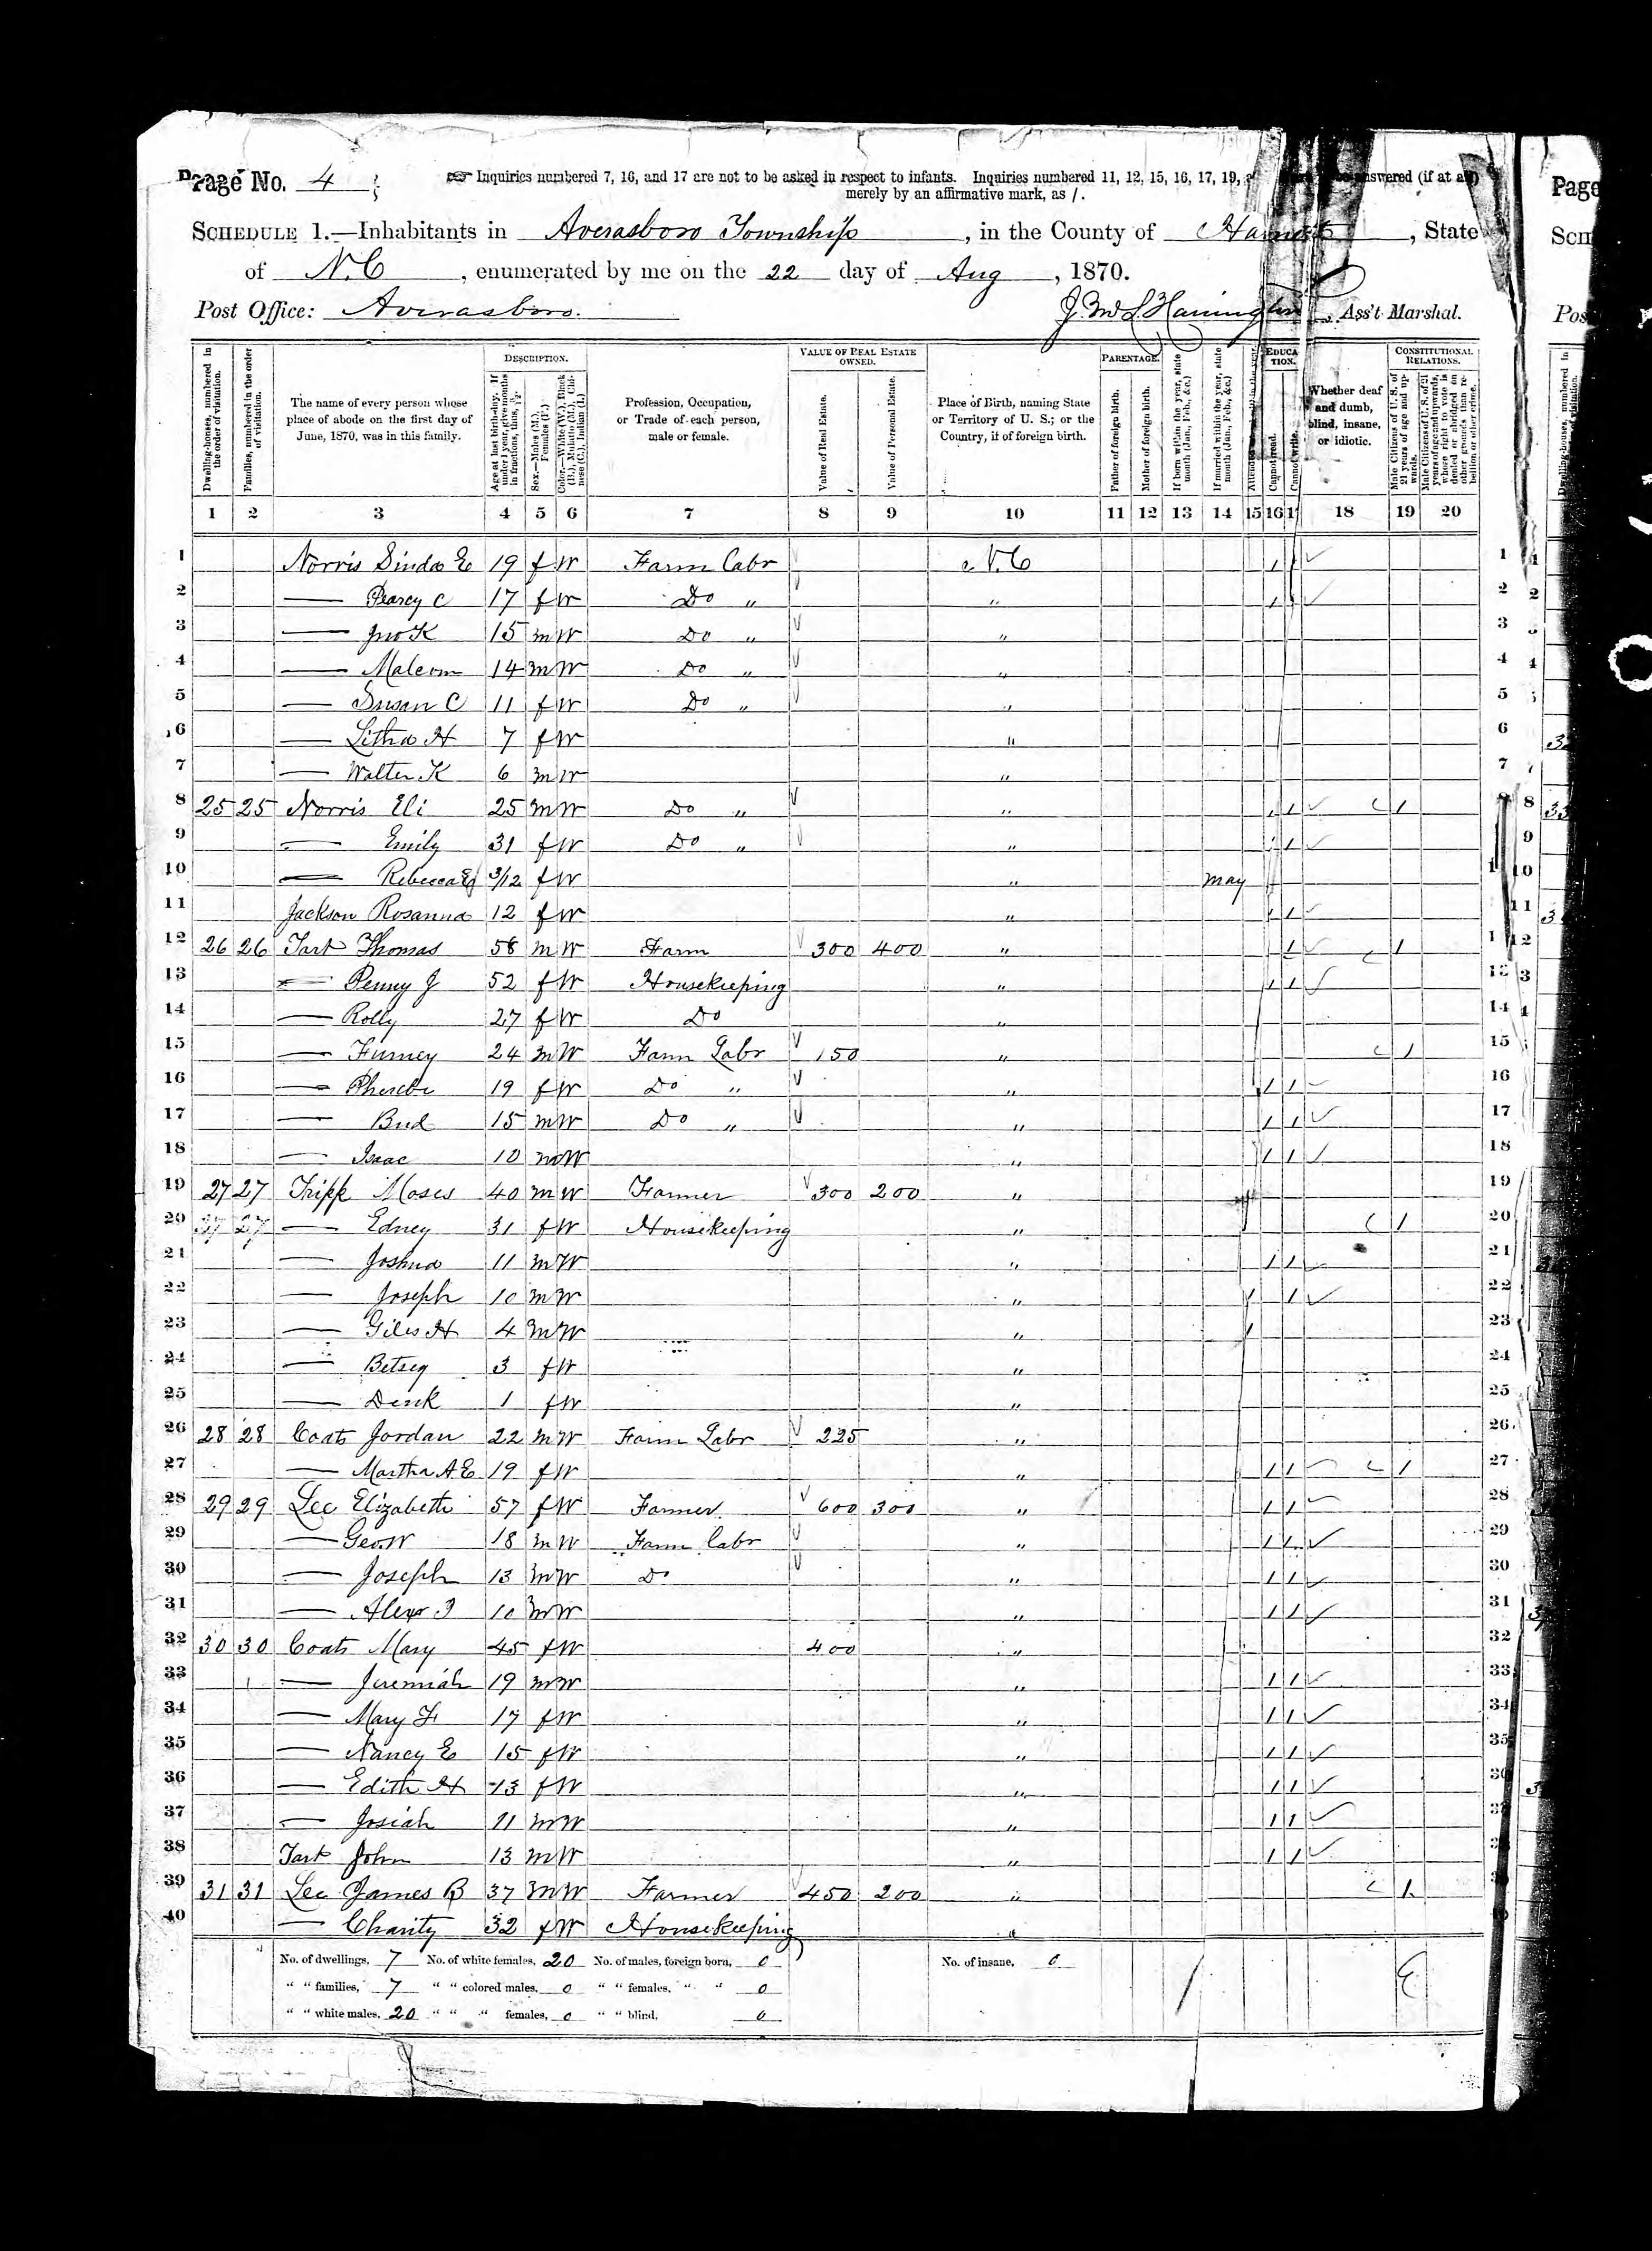 Page No. 4
Inquiries numbered 7, 16, and 17 are not to be asked in respect to infants. Inquiries numbered 11, 12, 15, 16, 17, 19, answered (if at all)
merely by an affirmative mark, as /.
SCHEDULE 1.—Inhabitants in Averasboro Township, in the County of Harnett, State
of N.C, enumerated by me on the 22 day of Aug, 1870.
Post Office: Averasboro. Ass't Marshal.
Dwelling-houses, numbered in the order of visitation.
Families, numbered in the order of visitation.
The name of every person whose place of abode on the first day of June, 1870, was in this family.
DESCRIPTION.
Age at last birth-day. If under 1 year, give months in fractions, thus, 3/12.
Sex.—Males (M.), Females (F.)
Color.—White (W.), Black (B.), Mulatto (M.), Chinese (C.), Indian (I.)
Profession, Occupation, or Trade of each person, male or female.
VALUE OF REAL ESTATE OWNED.
Value of Real Estate.
Value of Personal Estate.
Place of Birth, naming State or Territory of U. S.; or the Country, if of foreign birth.
PARENTAGE.
Father of foreign birth.
Mother of foreign birth.
If born within the year, state month (Jan., Feb., &c.)
If married within the year, state month (Jan., Feb., &c.)
EDUCATION.
Cannot read.
Cannot write.
Whether deaf and dumb, blind, insane, or idiotic.
CONSTITUTIONAL RELATIONS.
Male Citizens of U. S. of 21 years of age and upwards.
Male Citizens of U. S. of 21 years of age and upwards, whose right to vote is denied or abridged on other grounds than rebellion or other crime.
1 2 3 4 5 6 7 8 9 10 11 12 13 14 15 16 1 18 19 20
1 Norris Sinda E 19 f W Farm Labr N.C 1 1 1
2 — Pearcy C 17 f W Do " " 1 1 2
3 — Jno K 15 m W Do " " 3
4 — Malcom 14 m W Do " " 4
5 — Susan C 11 f W Do " " 5
6 — Litha H 7 f W " 6
7 — Walter K 6 m W " 7
8 25 25 Norris Eli 25 m W Do " " 1 1 1 8
9 — Emily 31 f W Do " " 1 1 9
10 — Rebecca E 3/12 f W " May 10
11 Jackson Rosanna 12 f W " 1 1 11
12 26 26 Tart Thomas 58 m W Farm 300 400 " 1 1 12
13 — Penny J 52 f W Housekeeping " 1 1 13
14 — Rolly 27 f W Do " 14
15 — Furney 24 m W Farm Labr 150 " 1 15
16 — Pheebe 19 f W Do " " 1 1 16
17 — Bud 15 m W Do " " 1 1 17
18 — Isaac 10 m W " 1 1 18
19 27 27 Tripp Moses 40 m W Farmer 300 200 " 19
20 27 27 — Edney 31 f W Housekeeping " 1 20
21 — Joshua 11 m W " 1 1 21
22 — Joseph 10 m W " 1 1 22
23 — Giles H 4 m W " 1 23
24 — Betsey 3 f W " 24
25 — 1 f W " 25
26 28 28 Coats Jordan 22 m W Farm Labr 225 " 26
27 — Martha A E 19 f W " 1 1 1 27
28 29 29 Lee Elizabeth 57 f W Farmer 600 300 " 1 1 28
29 — Geo W 18 m W Farm Labr " 1 1 29
30 — Joseph 13 m W Do " 1 1 30
31 — Alexr 10 m W " 1 1 31
32 30 30 Coats Mary 45 f W 400 " 32
33 — Jeremiah 19 m W " 1 1 33
34 — Mary F 17 f W " 1 1 34
35 — Nancy E 15 f W " 1 1 35
36 — Edith H 13 f W " 1 1 36
37 — Josiah 11 m W " 1 1 37
38 Tart John 13 m W " 1 1 38
39 31 31 Lee James B 37 m W Farmer 450 200 " 1
40 — Charity 32 f W Housekeeping "
No. of dwellings, 7 No. of white females, 20 No. of males, foreign born, 0 No. of insane, 0
" " families, 7 " " colored males, 0 " " females, " " 0
" " white males, 20 " " " females, 0 " " blind, 0
Page
SCH
Pos